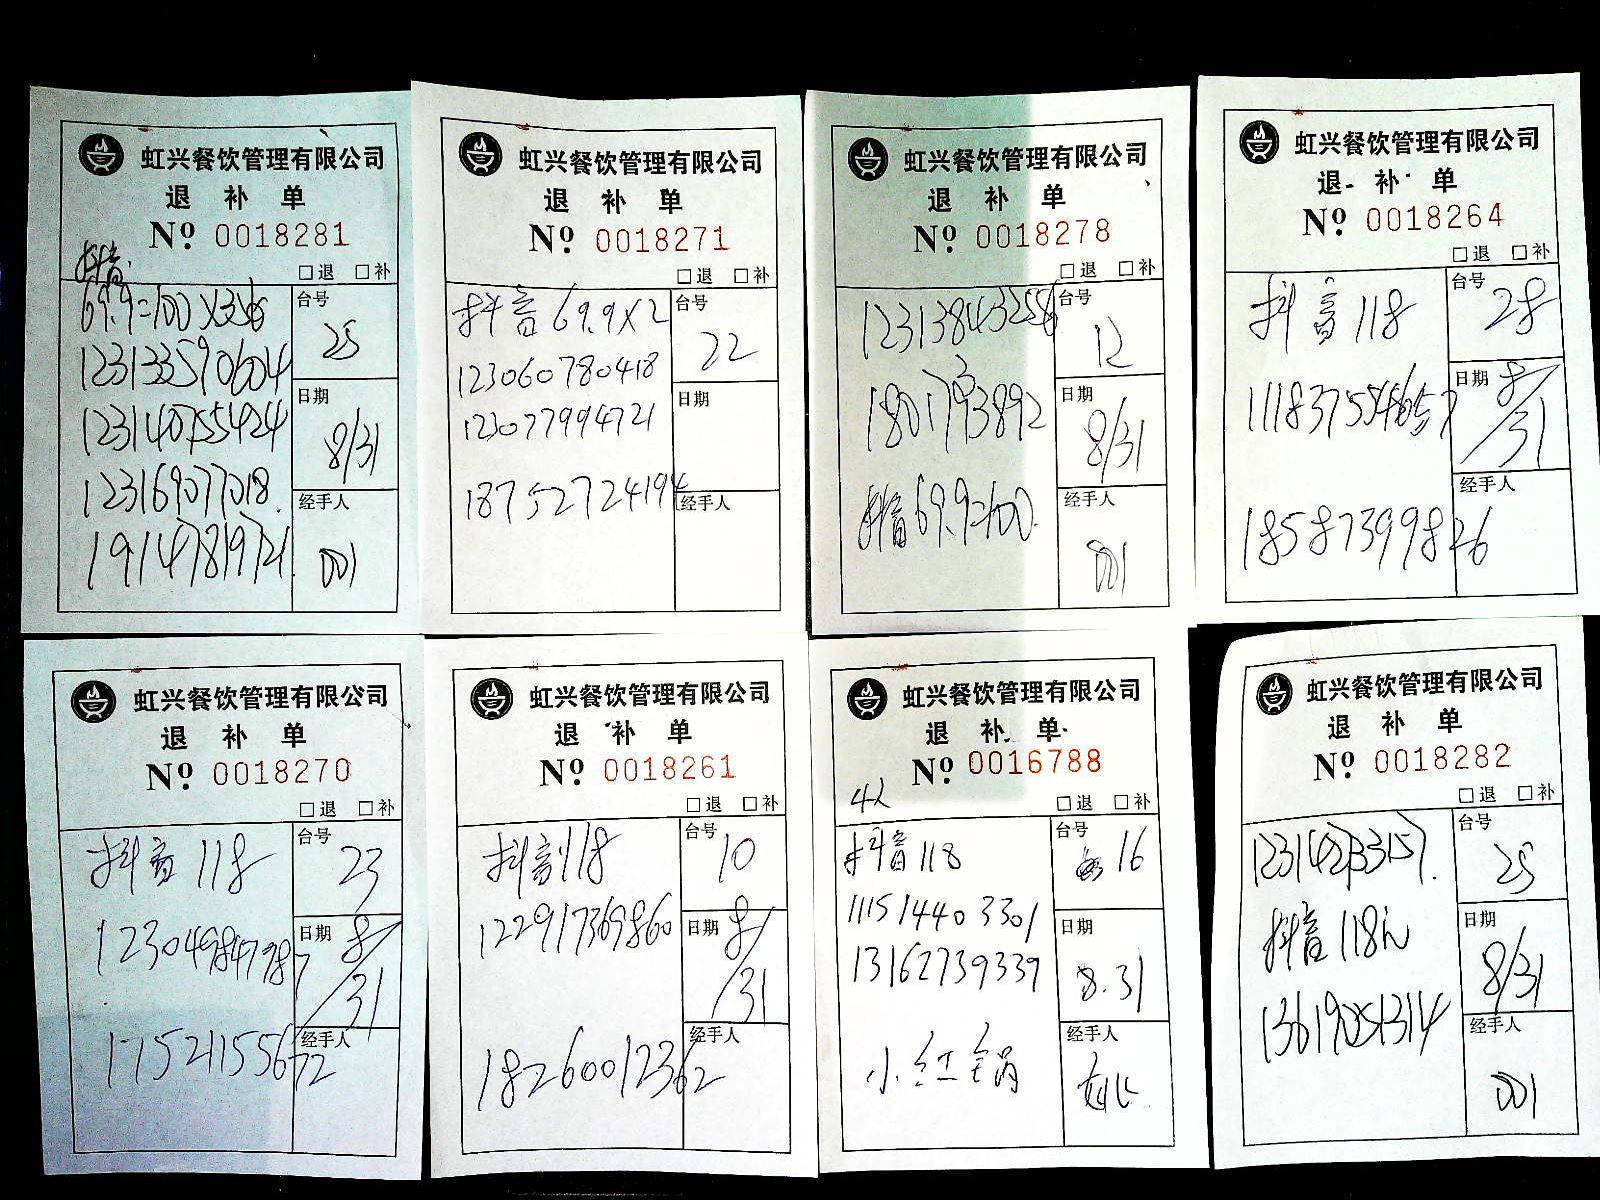 虹兴餐饮管理有限公司
退 补 单
Nº 0018281
□退 □补
抖音
69.9=100 X3
台号
25
123133590604
123140755424
日期
8/31
123169077018
经手人
19147819721
001
虹兴餐饮管理有限公司
退 补 单
Nº 0018271
□退 □补
抖音 69.9X2
台号
22
123060780418
日期
123077994721
18752724194
经手人
虹兴餐饮管理有限公司
退 补 单
Nº 0018278
□退 □补
台号
12
日期
18017793892
8/31
抖音 69.9=100
经手人
001
虹兴餐饮管理有限公司
退 补 单
Nº 0018264
□退 □补
抖音 118
台号
28
日期
8/31
经手人
18587399826
虹兴餐饮管理有限公司
退 补 单
Nº 0018270
□退 □补
抖音 118
台号
23
日期
8/31
经手人
17521155672
虹兴餐饮管理有限公司
退 补 单
Nº 0018261
□退 □补
抖音 118
台号
10
122917369860
日期
8/31
经手人
18260012362
虹兴餐饮管理有限公司
退 补 单
Nº 0016788
4人
□退 □补
抖音 118
台号
16
111514403301
日期
13162739339
8.31
小红锅
经手人
虹兴餐饮管理有限公司
退 补 单
Nº 0018282
□退 □补
台号
25
抖音 118元
日期
8/31
经手人
001